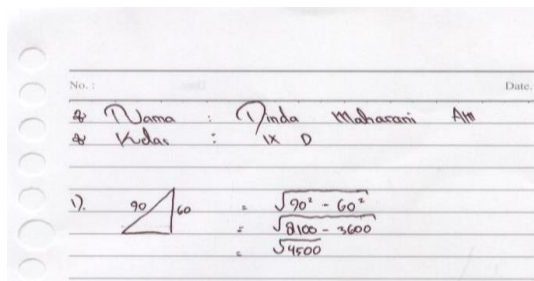 No. : Date.
Nama : Dinda Maharani
Kelas : IX D
1). 90 60 = √90² - 60²
= √8100 - 3600
= √4500